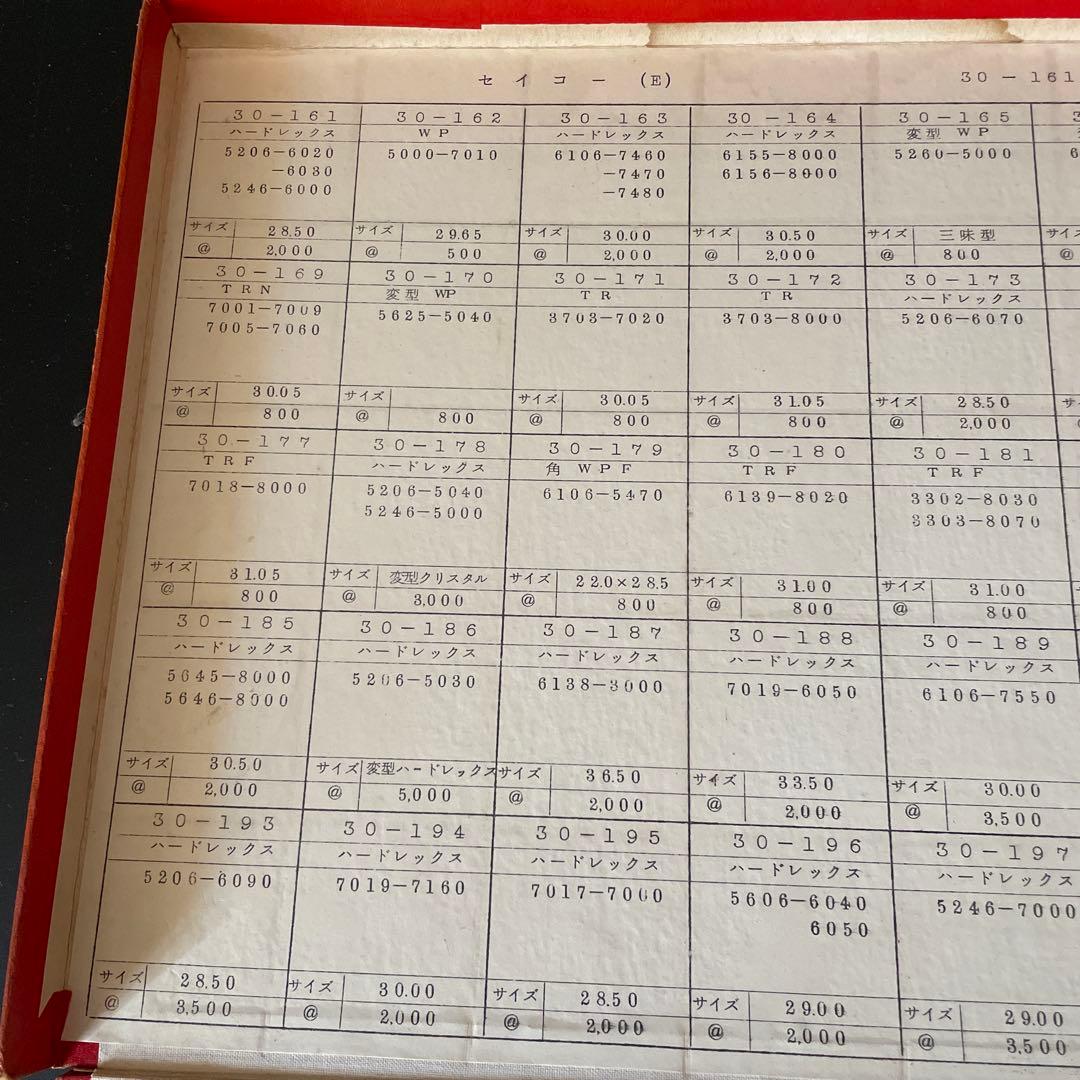 セイコー (E) 30-161
30-161 30-162 30-163 30-164 30-165
ハードレックス WP ハードレックス ハードレックス 変型 WP
5206-6020 5000-7010 6106-7460 6155-8000 5260-5000
-6030 -7470 6156-8000
5246-6000 -7480
サイズ 28.50 サイズ 29.65 サイズ 30.00 サイズ 30.50 サイズ 三味型 サイズ
@ 2,000 @ 500 @ 2,000 @ 2,000 @ 800 @
30-169 30-170 30-171 30-172 30-173
TRN 変型 WP TR TR ハードレックス
7001-7009 5625-5040 3703-7020 3703-8000 5206-6070
7005-7060
サイズ 30.05 サイズ サイズ 30.05 サイズ 31.05 サイズ 28.50
@ 800 @ 800 @ 800 @ 800 @ 2,000
30-177 30-178 30-179 30-180 30-181
TRF ハードレックス 角 WPF TRF TRF
7018-8000 5206-5040 6106-5470 6139-8020 3302-8030
5246-5000 3303-8070
サイズ 31.05 サイズ 変型クリスタル サイズ 22.0×28.5 サイズ 31.00 サイズ 31.00
@ 800 @ 3,000 @ 800 @ 800 @ 800
30-185 30-186 30-187 30-188 30-189
ハードレックス ハードレックス ハードレックス ハードレックス ハードレックス
5645-8000 5206-5030 6138-3000 7019-6050 6106-7550
5646-8000
サイズ 30.50 サイズ 変型ハードレックス サイズ 36.50 サイズ 33.50 サイズ 30.00
@ 2,000 @ 5,000 @ 2,000 @ 2,000 @ 3,500
30-193 30-194 30-195 30-196 30-197
ハードレックス ハードレックス ハードレックス ハードレックス ハードレックス
5206-6090 7019-7160 7017-7060 5606-6040 5246-7000
6050
サイズ 28.50 サイズ 30.00 サイズ 28.50 サイズ 29.00 サイズ 29.00
@ 3,500 @ 2,000 @ 2,000 @ 2,000 @ 3,500